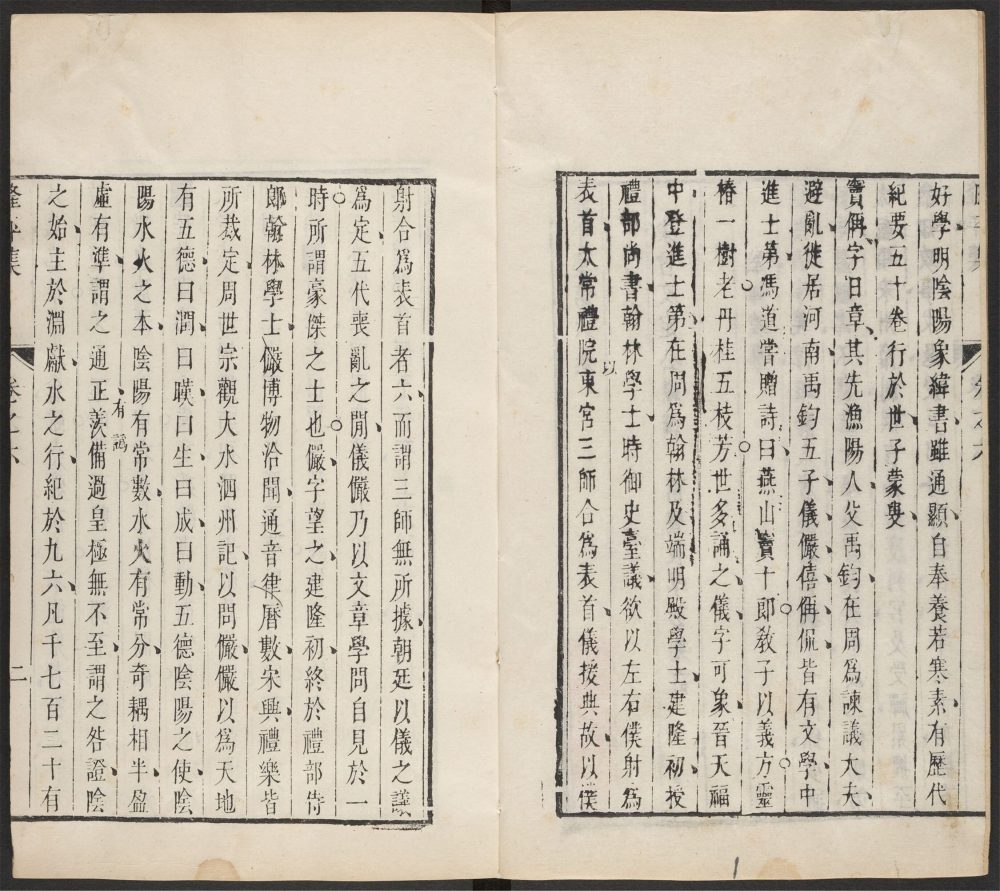 好學明陰陽象緯書雖通顯自奉養若寒素有歷代
紀要五十卷行於世子蒙叟
竇偁字日章其先漁陽人父禹鈞在周爲諫議大夫
避亂徙居河南禹鈞五子儀儼僖偁侃皆有文學中
進士第馮道嘗贈詩曰燕山竇十郎敎子以義方靈
椿一樹老丹桂五枝芳世多誦之儀字可象晉天福
中登進士第在周爲翰林及端明殿學士建隆初授
禮部尚書翰林學士時御史臺議欲以左右僕射爲
表首太常禮院以東宮三師合爲表首儀援典故以僕
射合爲表首者六而謂三師無所據朝廷以儀之議
爲定五代喪亂之閒儀儼乃以文章學問自見於一
時所謂豪傑之士也儼字望之建隆初終於禮部侍
郞翰林學士儼博物洽聞通音律曆數宋興禮樂皆
所裁定周世宗觀大水泗州記以問儼儼以爲天地
有五德曰潤曰暵曰生曰成曰動五德陰陽之使陰
陽水火之本陰陽有常數水火有常分奇耦相半盈
虛有準謂之通正羨備過皇極無不至謂之咎證陰
有譌
之始主於淵獻水之行紀於九六凡千七百二十有
隆平集
卷之六
二